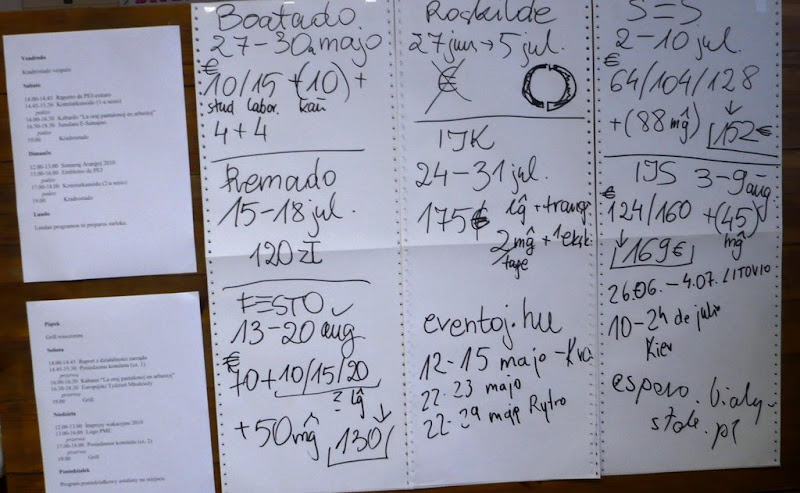 Vendredo
Kradrostado vespere
Sabato
14.00-14.45 Raporto da PEJ-estraro
14.45-15.30 Komitatkunsido (1-a sesio)
paŭzo
16.00-16.30 Kabaredo "La oraj pantalonoj en arbaretoj"
16.30-18.30
19.00 Kradrostado
Dimanĉo
12.00-13.00 Someraj Aranĝoj 2010
13.00-16.00 Emblemo de PEJ
paŭzo
17.00-18.00 Komitatkunsido (2-a sesio)
paŭzo
19.00 Kradrostado
Lundo
Lundan programon ni preparos surloke.
Piątek
Grill wieczorem
Sobota
14.00-14.45 Raport z działalności zarządu
14.45-15.30 Posiedzenie komitetu (cz. 1)
przerwa
16.00-16.30 Kabaret "La oraj pantalonoj en arbaretoj"
16.30-18.30 Europejski Tydzień Młodzieży
19.00 Grill
Niedziela
12.00-13.00 Imprezy wakacyjne 2010
13.00-16.00 Logo PME
przerwa
17.00-18.00 Posiedzenie komitetu (cz. 2)
przerwa
19.00 Grill
Poniedziałek
Program poniedziałkowy ustalimy na miejscu.
Boatado
27-30a majo
€
10/15 +(10) +
stud labor. kaŭ
4+4
Remado
15-18 jul.
120 zł
FESTO
13-20 aŭg
€
70+10/15/20
? lĝ
+50mĝ 130
Roskilde
27 jun → 5 jul.
€
IJK
24-31 jul.
175€ lĝ + tranĝ
2 mĝ + 1 ekik
/tage
eventoj.hu
12-15 majo -
22-23 majo
22-29 maja Rytro
S=S
2-10 jul.
€
64/104/128
+(88 mĝ) 152€
IJS 3-9 aŭg.
€
124/160 +(45)
mĝ
169€
26.06. - 4.07. LITOVIO
10-24 de julio
Kiev
espero.bialy-
stok.pl